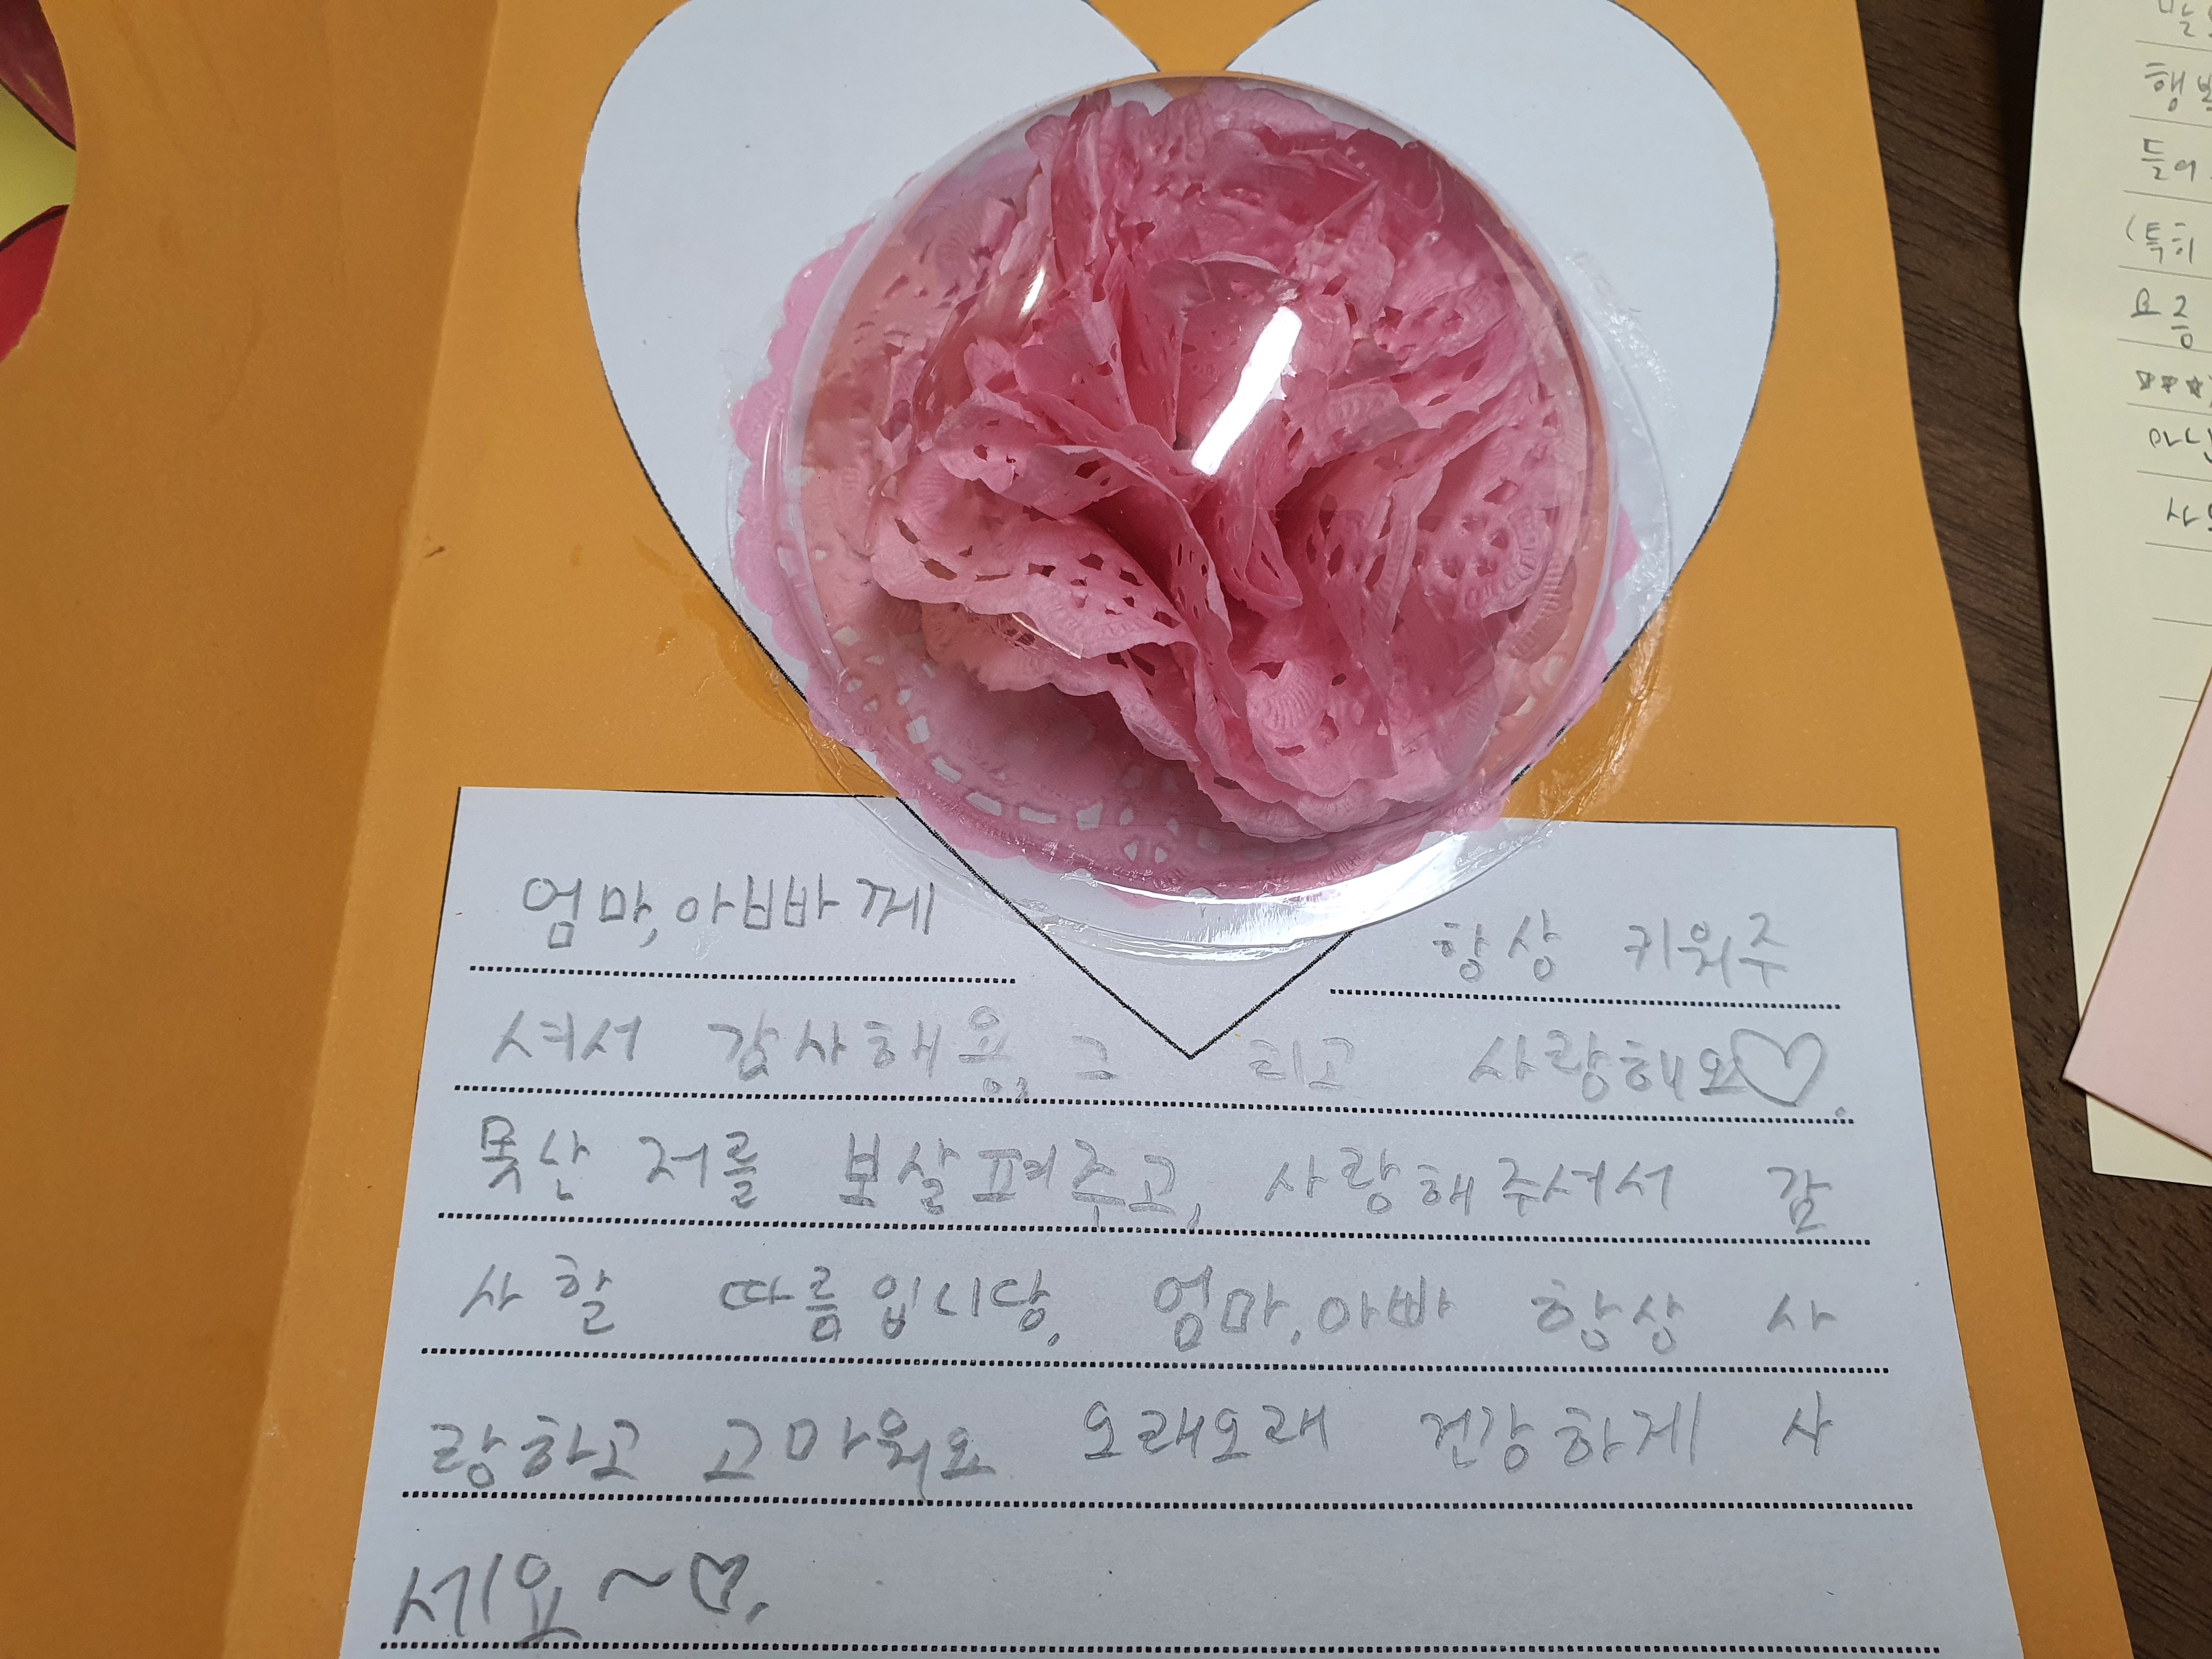 엄마,아빠께 항상 키워주
셔서 감사해용, 그 리고 사랑해요♡.
못난 저를 보살펴주고, 사랑해주셔서 감
사할 따름입니당. 엄마,아빠 항상 사
랑하고 고마워요 오래오래 건강하게 사
세요~♡.
들어
(특히
요즘